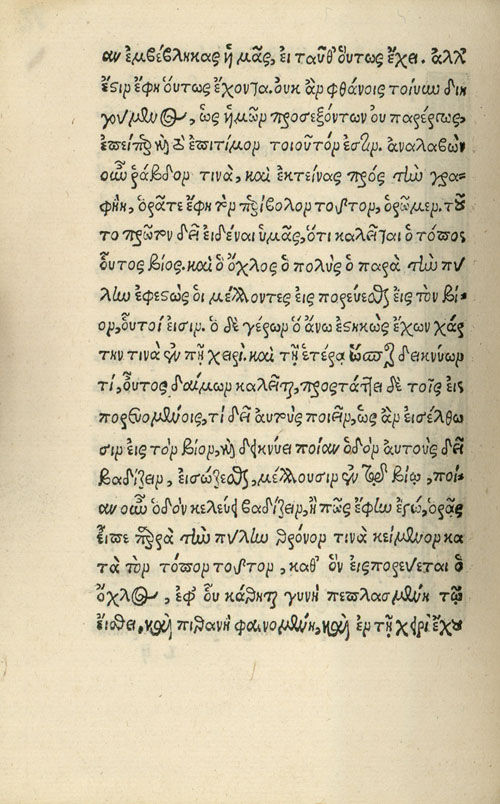 αν ἐμβέβληκας ἡμᾶς, ει ταῦθ' ὅυτως ἔχει. ἀλλ'
ἔϛιν ἔφη ὅυτως ἔχοντα. ὀυκ ἂν φθάνοις τοίνυν διη
γούμενος, ὡς ἡμῶν προσεξόντων ὀυ παρέργως,
ἐπείπερ καὶ τὸ ἐπιτίμιον τοιοῦτόν ἐστιν. ἀναλαβὼν
οὖν ῥάβδον τινὰ, καὶ ἐκτείνας πρὸς τὴν γρα-
φὴν, ὁρᾶτε ἔφη τὸν περίβολον τοῦτον, ὁρῶμεν. τοῦ
το πρῶτον δεῖ ειδέναι ὑμᾶς, ὅτι καλεῖται ὁ τόπος
οὗτος βίος. καὶ ὁ ὄχλος ὁ πολὺς ὁ παρὰ τὴν πύ
λην ἐφεϛὼς ὁι μέλλοντες εις πορεύεσθαι εις τὸν βί-
ον, οὗτοί εισιν. ὁ δὲ γέρων ὁ ἄνω ἑϛηκὼς ἔχων χάρ
την τινὰ ἐν τῇ χειρί. καὶ τῇ ἑτέρᾳ ὥσπερ δεικνύων
τί, οὗτος δαίμων καλεῖται, προστάττει δὲ τοῖς εις
πορευομένοις, τί δεῖ ἀυτοὺς ποιεῖν, ὡς ἂν εισέλθω
σιν εις τὸν βίον, καὶ δεικνύει ποίαν ὁδὸν αυτοὺς δεῖ
βαδίζειν, ει σώζεσθαι μέλλουσιν ἐν τῷ βίῳ, ποί-
αν οὖν ὁδὸν κελεύει βαδίζειν, ἢ πῶς ἔφην ἐγώ, ὁρᾷς
εἶπε παρὰ τὴν πύλην θρόνον τινὰ κείμενον κα
τὰ τὸν τόπον τοῦτον, καθ' ὃν εισπορεύεται ὁ
ὄχλος, ἐφ' οὗ κάθηται γυνὴ πεπλασμένη τῷ
ἔιδει, καὶ πιθανὴ φαινομένη, καὶ ἐν τῇ χειρὶ ἔχου